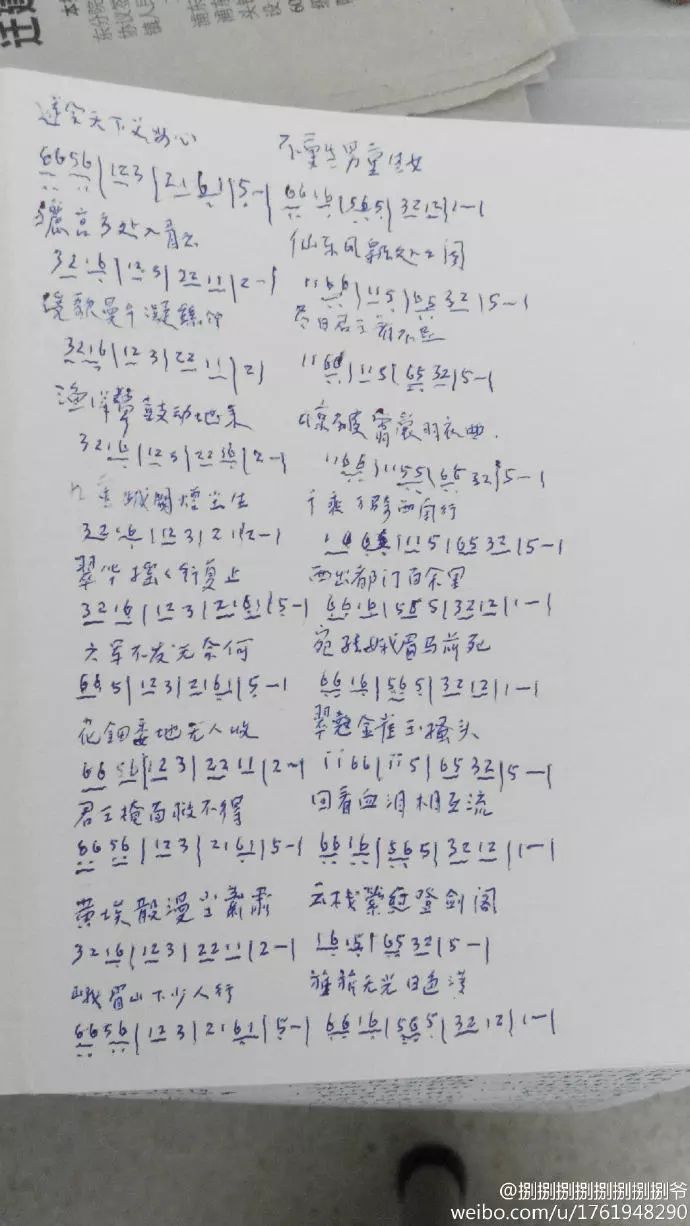 遂令天下父母心 不重生男重生女
6656|123|2161|5-| 6616|565|3212|1-|
骊宫高处入青云 仙乐风飘处处闻
3216|123|2211|2-| 1166|115|6532|5-|
缓歌慢午凝絲竹 尽日君王看不足
3216|123|2211|2| 1166|115|6532|5-|
渔阳鼙鼓动地来 惊破霓裳羽衣曲
3216|123|2216|2-| 1166|1155|6532|5-|
九重城闕煙尘生 千乘万骑西南行
3216|123|21|2-| 115|6532|5-|
翠华摇々行复止 西出都门百余里
3216|123|2161|5-| 6616|565|3212|1-|
六军不发无奈何 宛转蛾眉马前死
665|123|2161|5-| 6616|565|3212|1-|
花钿委地无人收 翠翘金雀玉搔头
6656|123|2211|2-| 1166|115|6532|5-|
君王掩面救不得 回看血泪相互流
6656|123|2161|5-| 6616|565|3212|1-|
黄埃散漫 云栈萦纡登剑阁
3216|123|2211|2-| 1615|6532|5-|
峨眉山下少人行 旌旗无光日色薄
6656|123|2161|5-| 6616|565|3212|1-|
@捌捌捌捌捌捌捌捌捌爷
weibo.com/u/1761948290